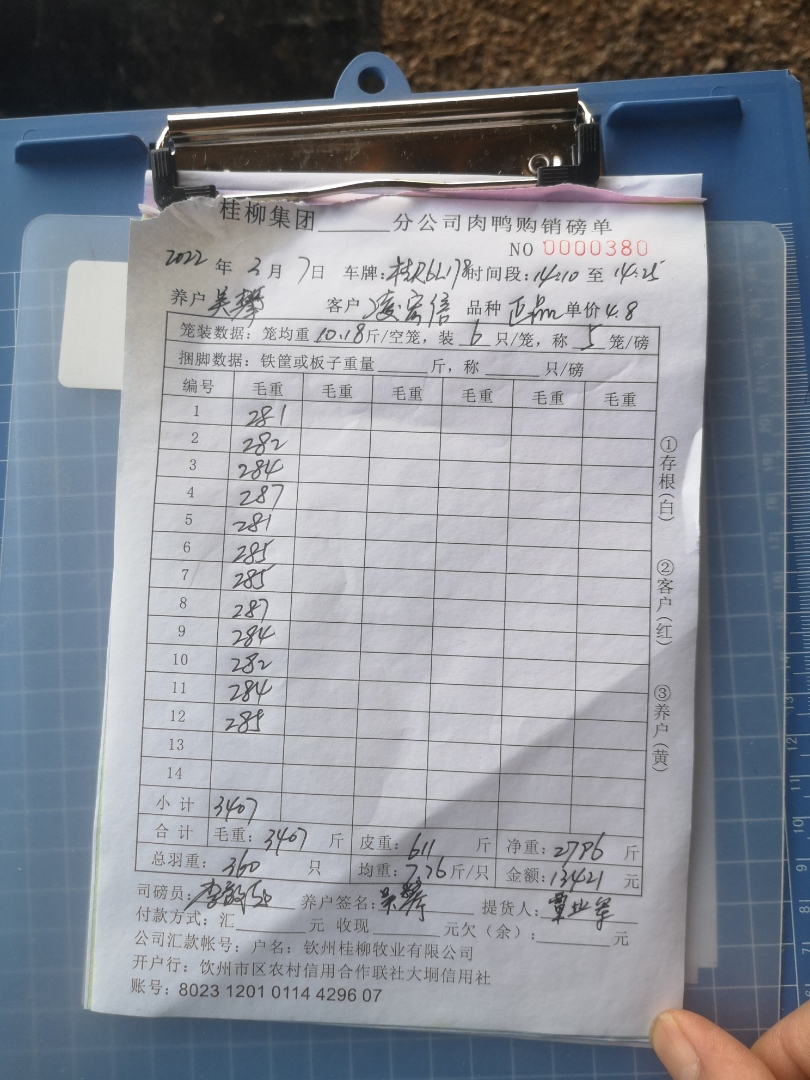 桂柳集团______分公司肉鸭购销磅单
NO 0000380
2022 年 3 月 7 日 车牌: 时间段: 14:10 至 14:25
养户 吴攀 客户 凌家信 品种 单价 4.8
笼装数据: 笼均重 10.18 斤/空笼, 装 6 只/笼, 称 5 笼/磅
捆脚数据: 铁筐或板子重量______斤, 称______只/磅
编号 毛重 毛重 毛重 毛重 毛重 毛重
1 281
2 282
3 284
4 287
5 281
6 285
7 285
8 287
9 284
10 282
11 284
12 285
13
14
小计 3407
合计 毛重: 3407 斤 皮重: 611 斤 净重: 2796 斤
总羽重: 360 只 均重: 7.76 斤/只 金额: 13421 元
司磅员: 养户签名: 吴攀 提货人: 覃业军
付款方式: 汇______元 收现______元欠(余):______元
公司汇款帐号: 户名: 钦州桂柳牧业有限公司
开户行: 饮州市区农村信用合作联社大垌信用社
账号: 8023 1201 0114 4296 07
①存根(白)
②客户(红)
③养户(黄)